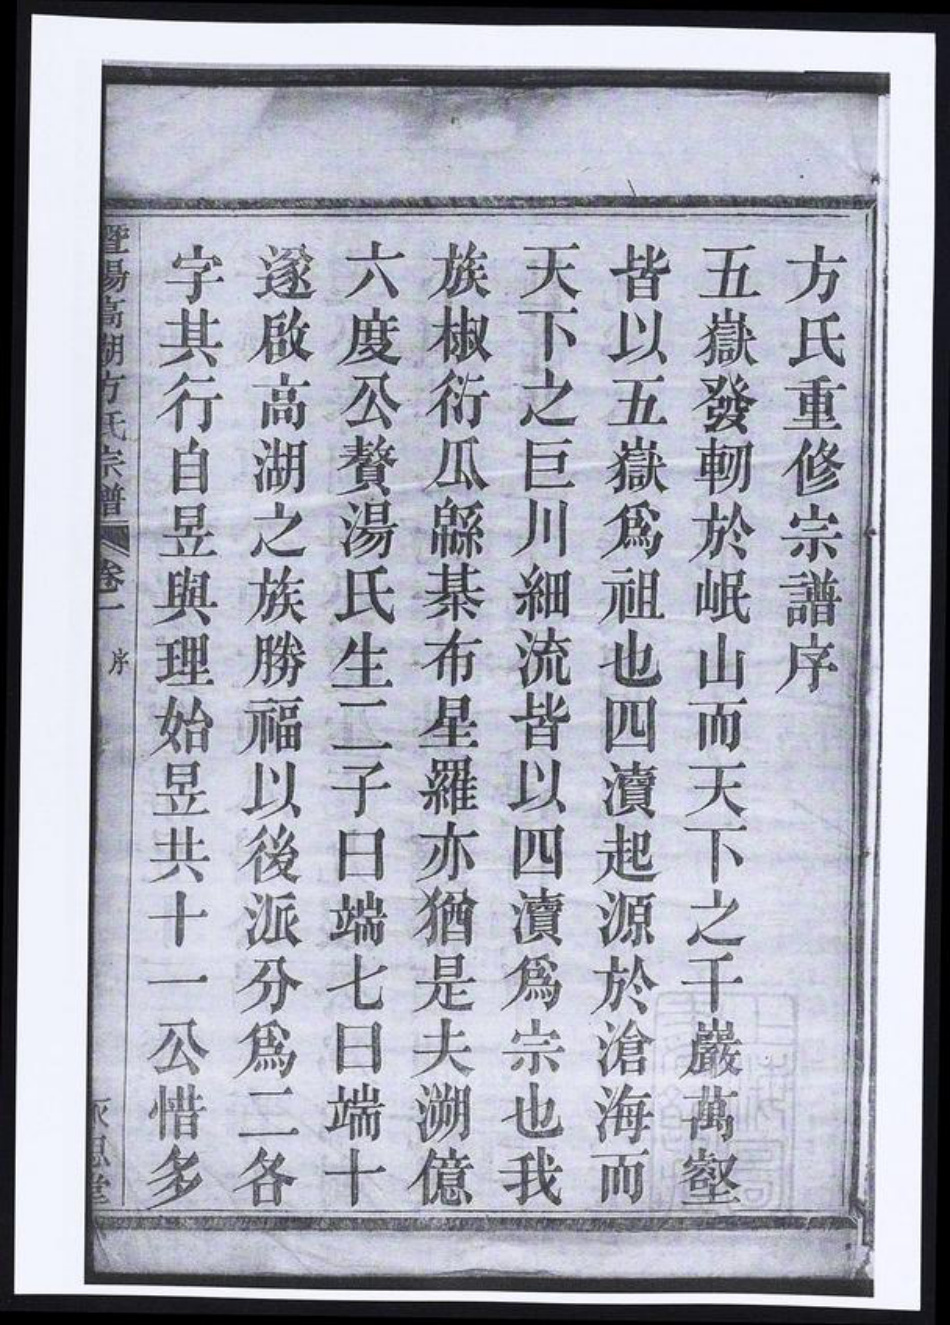 方氏重修宗譜序
五嶽發軔於岷山而天下之千巖萬壑
皆以五嶽爲祖也四瀆起源於滄海而
天下之巨川細流皆以四瀆爲宗也我
族椒衍瓜緜棊布星羅亦猶是夫溯億
六度公贅湯氏生二子曰端七曰端十
遂啟高湖之族勝福以後派分爲二各
字其行自昱與理始昱共十一公惜多
暨陽高湖方氏宗譜
卷一
序
永思堂